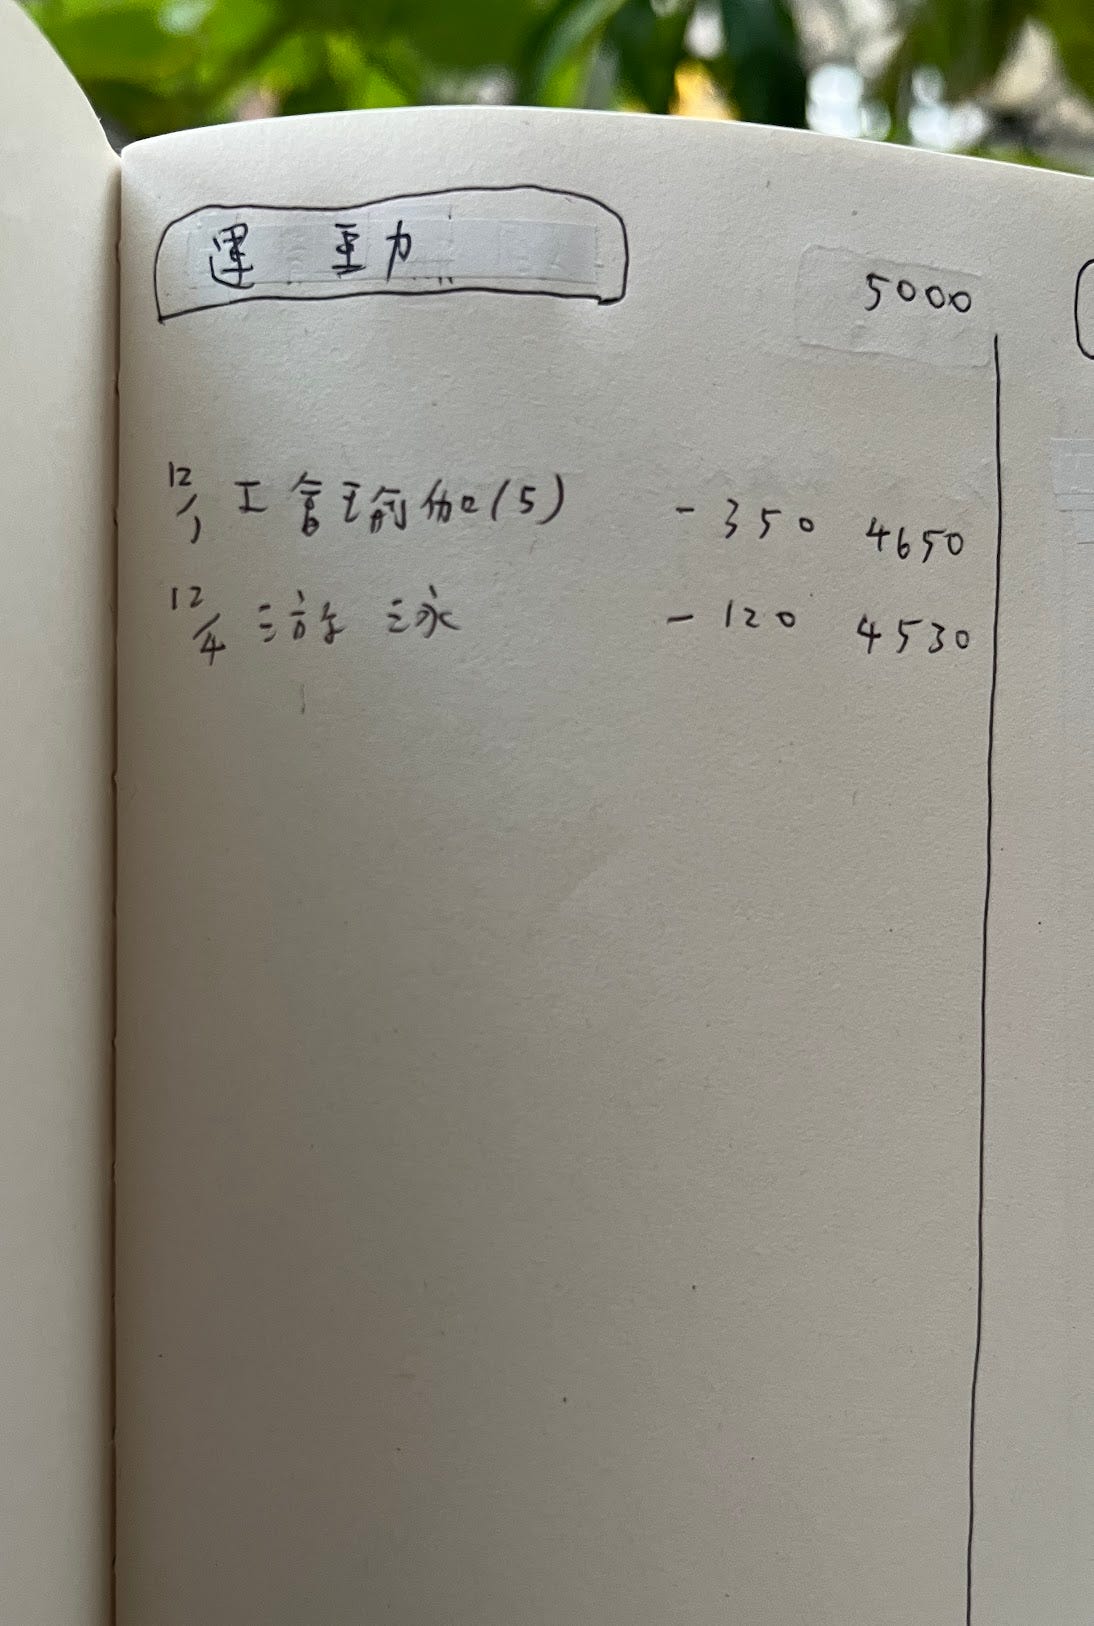 運動 5000
12/1 工會瑜伽(5) -350 4650
12/4 游泳 -120 4530